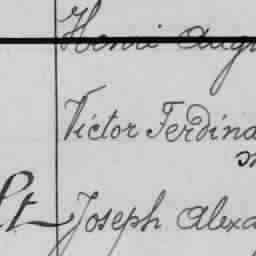 Henri Augu
Victor Ferdina
Joseph Alexa